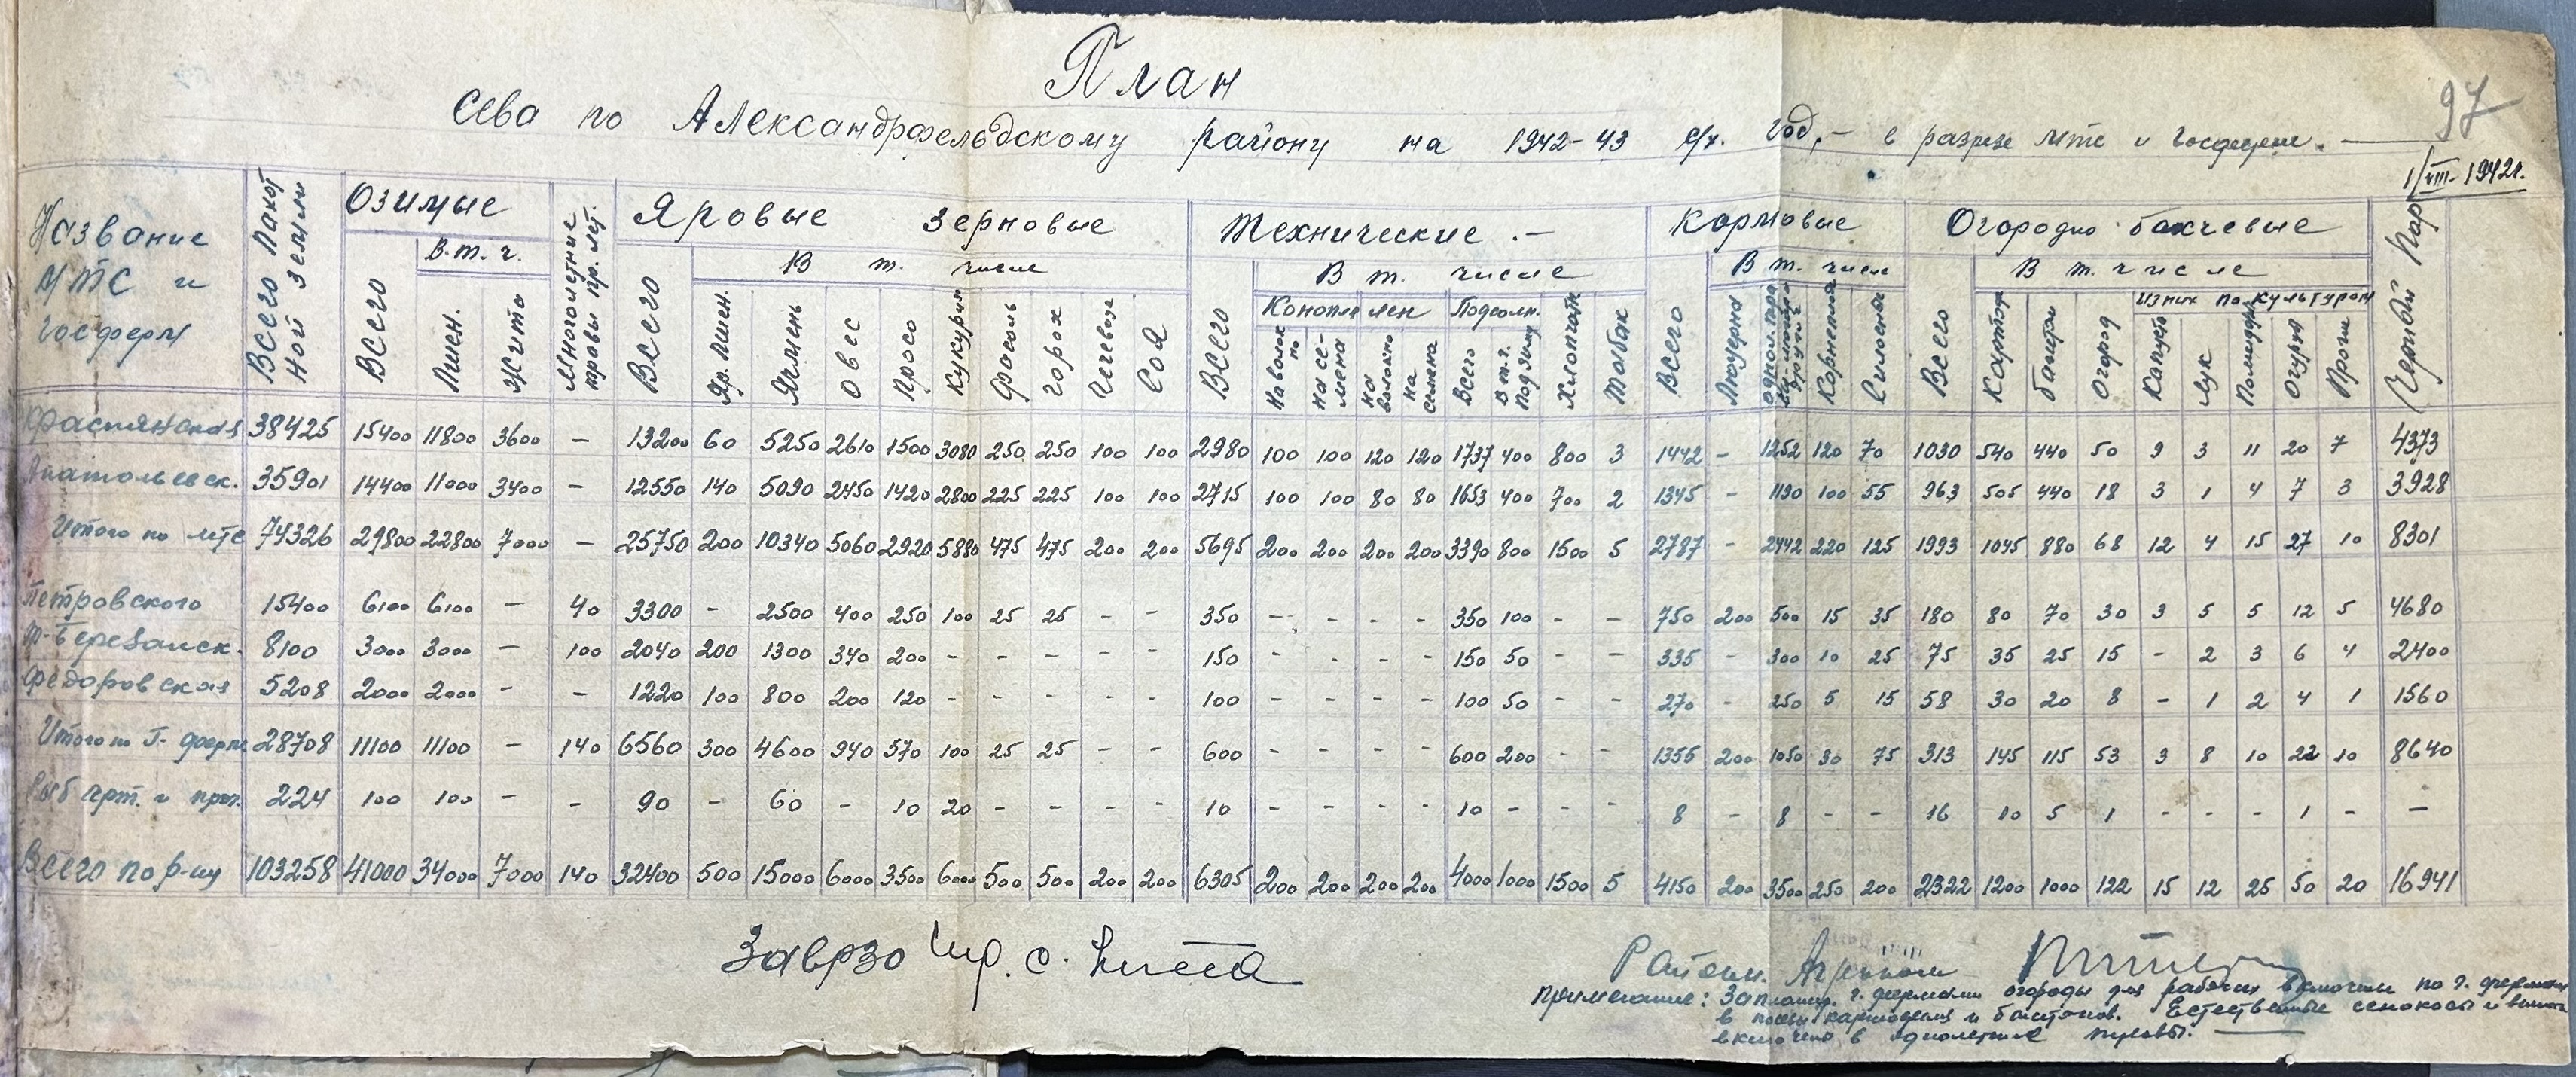 План
Сева по Александрфельдскому району на 1942-43 с/х. год, – в разрезе мтс и госферм. –
97
1/VIII-1942г.
Название МТС и госферм
Всего пахотной земли
Озимые
Всего
В.т.ч.
Пшен.
Жито
Многолетние травы пр. лет.
Яровые зерновые
Всего
В т. числе
Яр. пшен.
Ячмень
Овес
Просо
Кукуруза
Фасоль
Горох
Чечевица
Соя
Технические. –
Всего
В т. числе
Конопля
На волокно
На семена
лен
на волокно
на семена
Подсолн.
Всего
в т.ч. под зиму
Хлопчатн
Табак
Кормовые
Всего
В т. числе
Люцерна
Корнеплод
Силосные
Огородно бахчевые
Всего
В т. числе
Картоф
баштан
Огород
Из них по культурам
Капуста
Лук
Помидоры
Огурц
Прочие
Черный Пар
38425 15400 11800 3600 – 13200 60 5250 2610 1500 3080 250 250 100 100 2980 100 100 120 120 1737 400 800 3 1442 – 1252 120 70 1030 540 440 50 9 3 11 20 7 4373
Анатольевск. 35901 14400 11000 3400 – 12550 140 5090 2450 1420 2800 225 225 100 100 2715 100 100 80 80 1653 400 700 2 1345 – 1190 100 55 963 505 440 18 3 1 4 7 3 3928
Итого по мтс 74326 29800 22800 7000 – 25750 200 10340 5060 2920 5880 475 475 200 200 5695 200 200 200 200 3390 800 1500 5 2787 – 2442 220 125 1993 1045 880 68 12 4 15 27 10 8301
Петровского 15400 6100 6100 – 40 3300 – 2500 400 250 100 25 25 – – 350 – – – – 350 100 – – 750 200 500 15 35 180 80 70 30 3 5 5 12 5 4680
Березанск. 8100 3000 3000 – 100 2040 200 1300 340 200 – – – – – 150 – – – – 150 50 – – 335 – 300 10 25 75 35 25 15 – 2 3 6 4 2400
Федоровская 5208 2000 2000 – – 1220 100 800 200 120 – – – – – 100 – – – – 100 50 – – 270 – 250 5 15 58 30 20 8 – 1 2 4 1 1560
Итого по Г- ферм 28708 11100 11100 – 140 6560 300 4600 940 570 100 25 25 – – 600 – – – – 600 200 – – 1355 200 1050 30 75 313 145 115 53 3 8 10 22 10 8640
224 100 100 – – 90 – 60 – 10 20 – – – – 10 – – – – 10 – – – 8 – 8 – – 16 10 5 1 – – – 1 – –
Всего по р-ну 103258 41000 34000 7000 140 32400 500 15000 6000 3500 6000 500 500 200 200 6305 200 200 200 200 4000 1000 1500 5 4150 200 3500 250 200 2322 1200 1000 122 15 12 25 50 20 16941
Заврзо
Район. Агроном
Примечание: Запланир. г. фермами огороды для рабочих включены по г. фермам
в посевы картофеля и баштанов. Естественные сенокосы и
включено в однолетние травы.